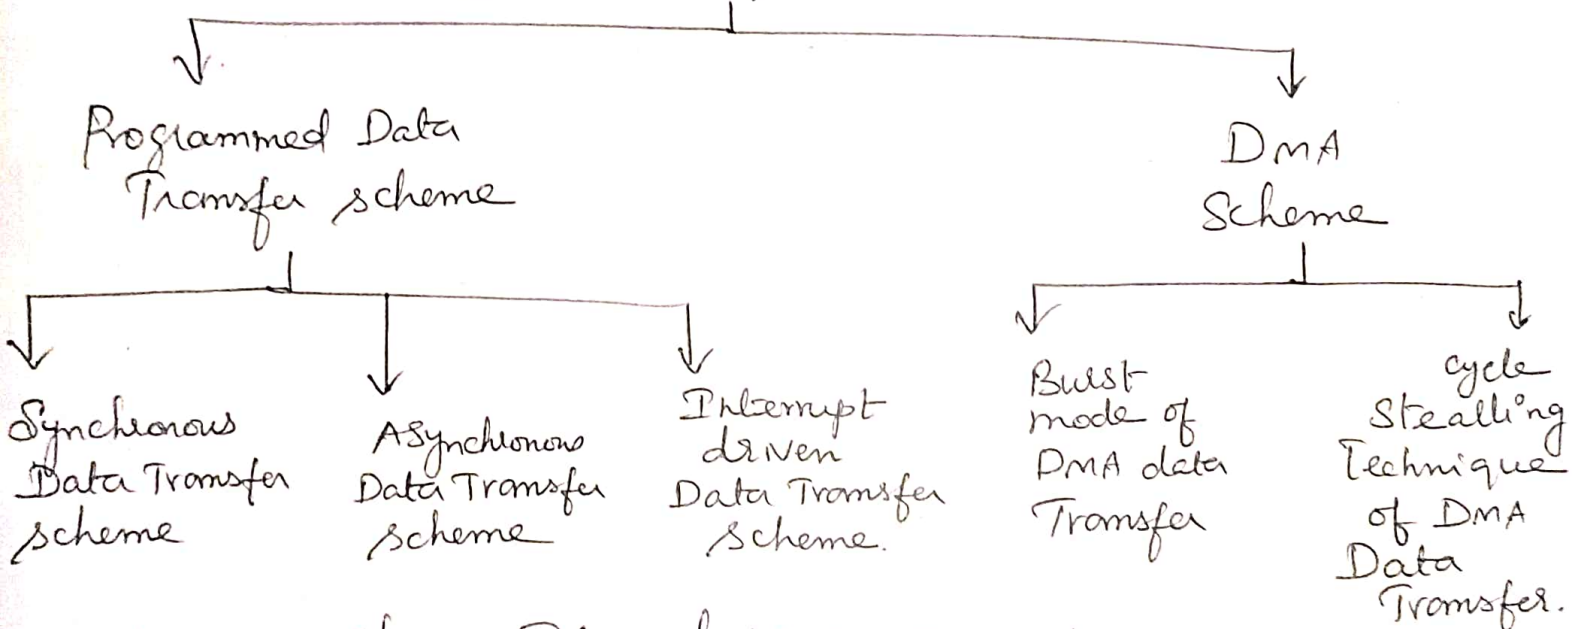 Programmed Data
Transfer scheme
DMA
Scheme
Synchronous
Data Transfer
scheme
Asynchronous
Data Transfer
scheme
Interrupt
driven
Data Transfer
scheme.
Burst
mode of
DMA data
Transfer
cycle
Stealling
Technique
of DMA
Data
Transfer.